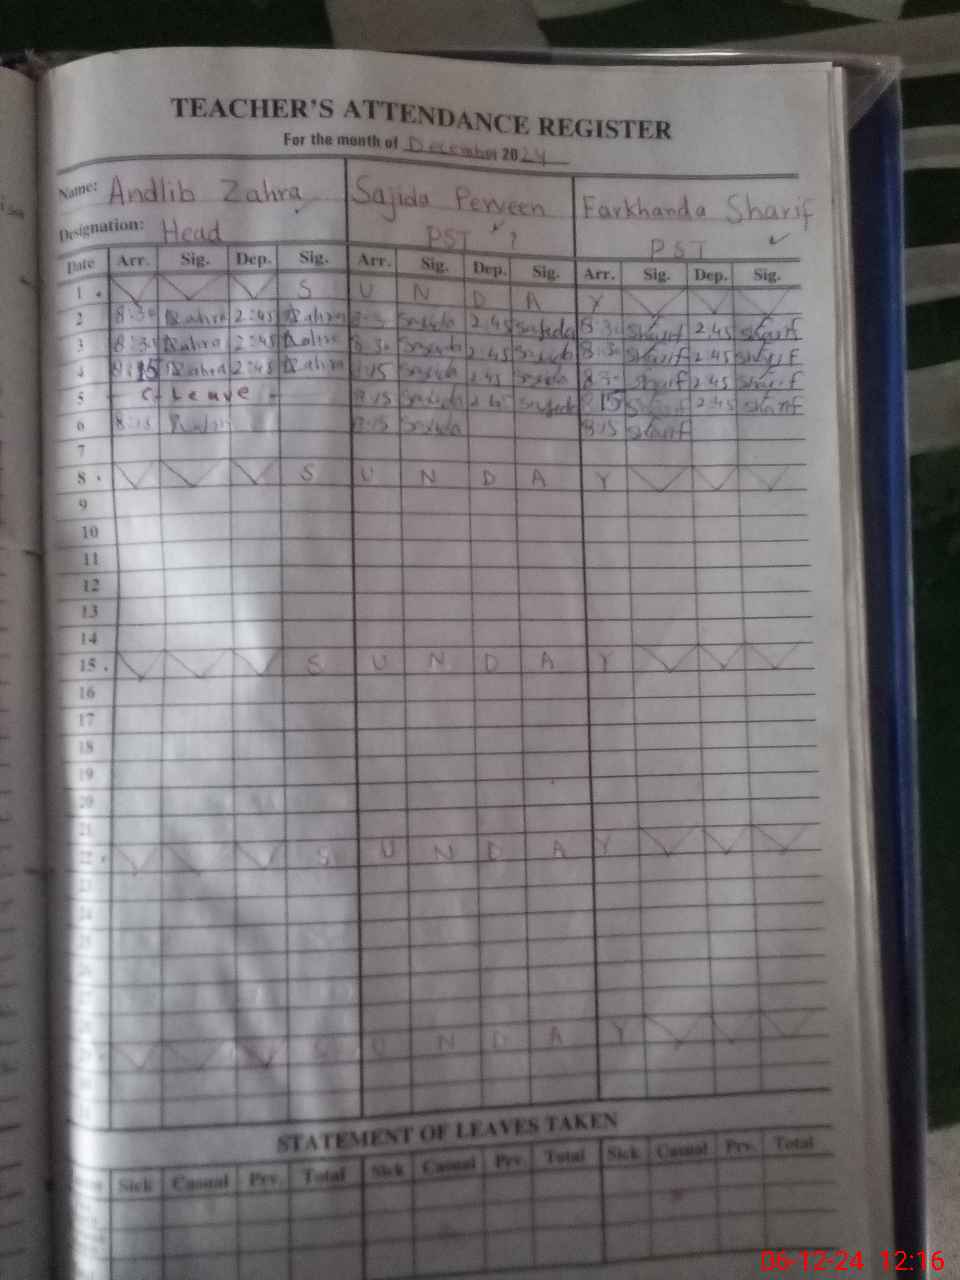 TEACHER'S ATTENDANCE REGISTER
For the month of December 2024
Name: Andlib Zahra Sajida Perveen Farkhanda Sharif
Designation: Head PST ? PST
Date Arr. Sig. Dep. Sig. Arr. Sig. Dep. Sig. Arr. Sig. Dep. Sig.
1 S U N D A Y
2 8:30 Zahra 2:45 Zahra Sajida 2:45 Sajida 8:30 Sharif 2:45 Sharif
3 8:30 Zahra 2:45 Zahra 8:30 Sajida 2:45 Sajida 8:30 Sharif 2:45 Sharif
4 8:15 Zahra 2:45 Zahra 8:15 Sajida 2:45 Sajida Sharif 2:45 Sharif
5 C Leave 8:15 Sajida 2:45 Sajida 8:15 Sharif 2:45 Sharif
6 8:15 Zahra 8:15 Sajida 8:15 Sharif
7
8 S U N D A Y
9
10
11
12
13
14
15 S U N D A Y
16
17
18
19
20
21
22 S U N D A Y
23
24
25
U N D A Y
STATEMENT OF LEAVES TAKEN
Sick Casual Prv. Total Sick Casual Prv. Total Sick Casual Prv. Total
06-12-24 12:16